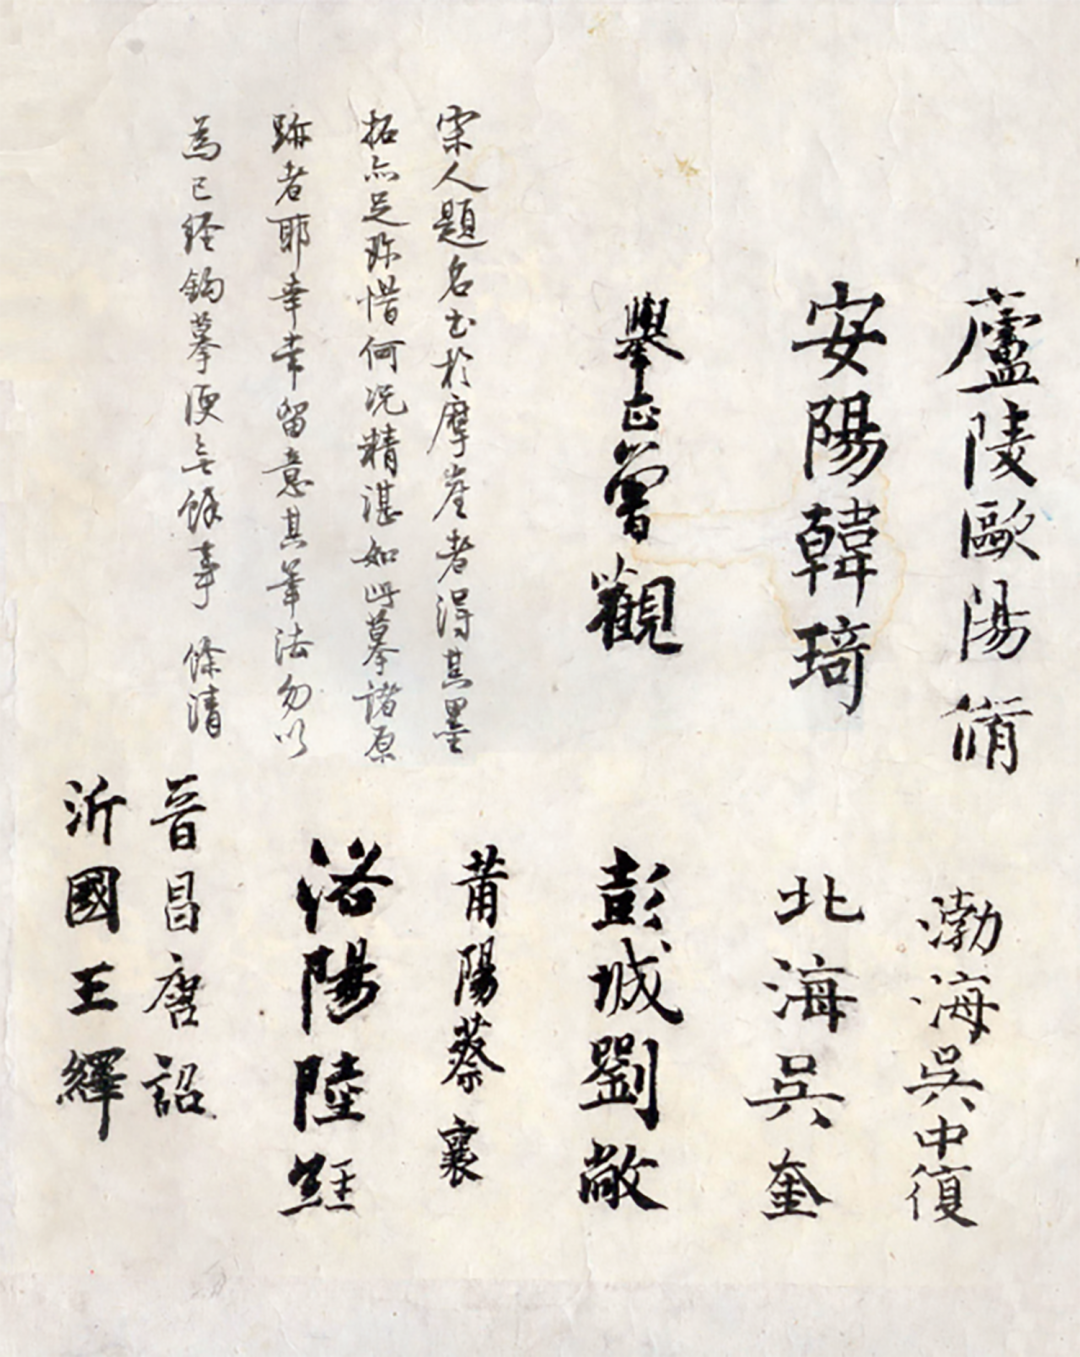 廬陵歐陽脩
安陽韓琦
舉正曾觀
宋人題名書於摩崖者得其墨
拓亦足珎惜何况精湛如此摹諸原
跡者耶幸幸留意其筆法勿以
為已經鈎摹便無餘事 條清
渤海吳中復
北海吳奎
彭城劉敞
莆陽蔡襄
洛陽陸經
晉昌唐詔
沂國王繹